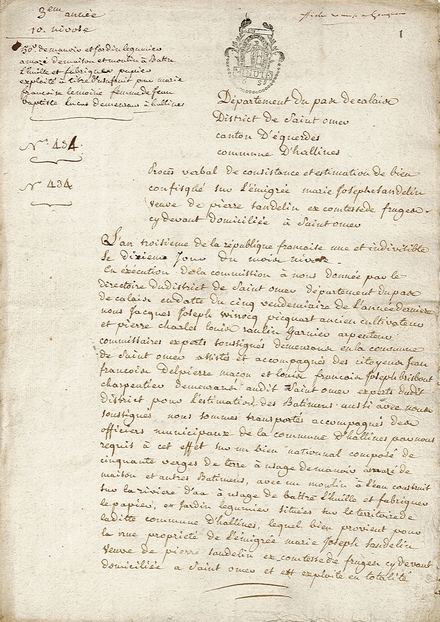 3eme année
10. nivose
50 v. de manoir et jardin legumier
amazé de maison et moulin à Battre
l'huille et fabriquer papier
exploité à titre d'usufruit par marie
francoise lemoine femme de feu
baptiste lucas demeurans a hallines
1
N° 434
N° 434
Département du pas de calais
District de Saint omer
canton D'equerdes
commune D'hallines
Procès verbal de consistance et estimation de bien
confisqué sur l'émigrée marie Joseph Sandelin
veuve de pierre Sandelin ex comtesse de fruges
cydevant domiciliée à Saint omer
L'an troisieme de la république francoise une et indivisible
le dixieme Jour du mois nivose
En exécution de la commission à nous donnée par le
Directoire du district de Saint omer département du pas
de calais en datte du cinq vendemiaire de l'année derniere
nous Jacques Joseph winocq picquart ancien cultivateur
et pierre charles louis Garnier arpenteur
commissaires experts soussignés demeurans en la commune
de Saint omer assistés et accompagnés des citoyens Jean
francois Delpierre macon et louis francois Joseph
charpentier demeurans audit Saint omer experts dudit
District pour l'estimation des Batimens aussi avec nous
soussignés nous sommes transportés accompagnés des
officiers municipaux de la commune d'hallines par nous
requis à cet effet sur un bien national composé de
cinquante verges de terre à usage de manoir amazé de
maison et autres Batimens, avec un moulin à l'eau construit
sur la riviere d'aa à usage de battre l'huille et fabriquer
le papier, et Jardin legumier situées sur le territoire de
laditte commune d'hallines, lequel bien provient pour
la nue propriété de l'émigrée marie Joseph Sandelin
veuve de pierre Sandelin ex comtesse de fruges cydevant
domiciliée a Saint omer et est exploité en totalité